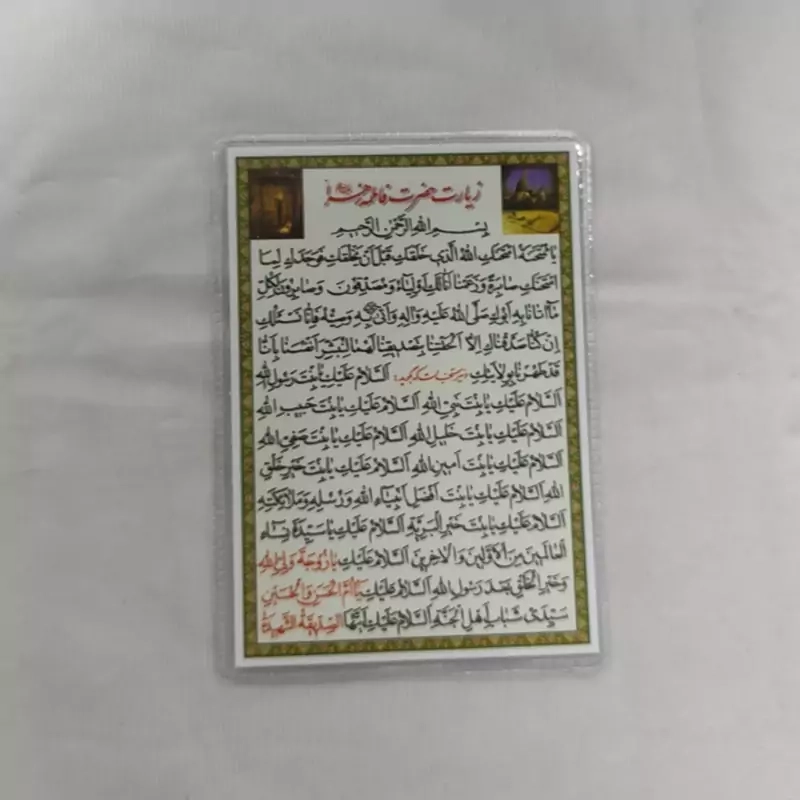 زیارت حضرت فاطمه زهرا
بِسْمِ اللهِ الرَّحْمٰنِ الرَّحیمِ
یا مُمْتَحَنَةُ امْتَحَنَكِ اللهُ الَّذی خَلَقَكِ قَبْلَ اَنْ یَخْلُقَكِ فَوَجَدَكِ لِمَا
امْتَحَنَكِ صابِرَةً وَ زَعَمْنا اَنّا لَكِ اَوْلِیاءُ وَ مُصَدِّقُونَ وَ صابِرُونَ لِكُلِّ
ما اَتانا بِهِ اَبُوكِ صَلَّی اللهُ عَلَیْهِ وَ الِهِ وَ اَتی بِهِ وَصِیُّهُ فَاِنّا نَسْئَلُكِ
اِنْ كُنّا صَدَّقْناكِ اِلاّ اَلْحَقْتِنا بِتَصْدیقِنا لَهُما لِنُبَشِّرَ اَنْفُسَنا بِاَنّا
قَدْ طَهُرْنا بِوِلایَتِكِ اَلسَّلامُ عَلَیْكِ یا بِنْتَ رَسُولِ اللهِ
اَلسَّلامُ عَلَیْكِ یا بِنْتَ نَبِیِّ اللهِ اَلسَّلامُ عَلَیْكِ یا بِنْتَ حَبیبِ اللهِ
اَلسَّلامُ عَلَیْكِ یا بِنْتَ خَلیلِ اللهِ اَلسَّلامُ عَلَیْكِ یا بِنْتَ صَفِیِّ اللهِ
اَلسَّلامُ عَلَیْكِ یا بِنْتَ اَمینِ اللهِ اَلسَّلامُ عَلَیْكِ یا بِنْتَ خَیْرِ خَلْقِ
اللهِ اَلسَّلامُ عَلَیْكِ یا بِنْتَ اَفْضَلِ اَنْبِیاءِ اللهِ وَ رُسُلِهِ وَ مَلائِكَتِهِ
اَلسَّلامُ عَلَیْكِ یا بِنْتَ خَیْرِ الْبَرِیَّةِ اَلسَّلامُ عَلَیْكِ یا سَیِّدَةَ نِساءِ
الْعالَمینَ مِنَ الْاَوَّلینَ وَ الْاخِرینَ اَلسَّلامُ عَلَیْكِ یا زَوْجَةَ وَلِیِّ اللهِ
وَ خَیْرِ الْخَلْقِ بَعْدَ رَسُولِ اللهِ اَلسَّلامُ عَلَیْكِ یا اُمَّ الْحَسَنِ وَ الْحُسَیْنِ
سَیِّدَیْ شَبابِ اَهْلِ الْجَنَّةِ اَلسَّلامُ عَلَیْكِ اَیَّتُهَا الصِّدّیقَةُ الشَّهیدَةُ